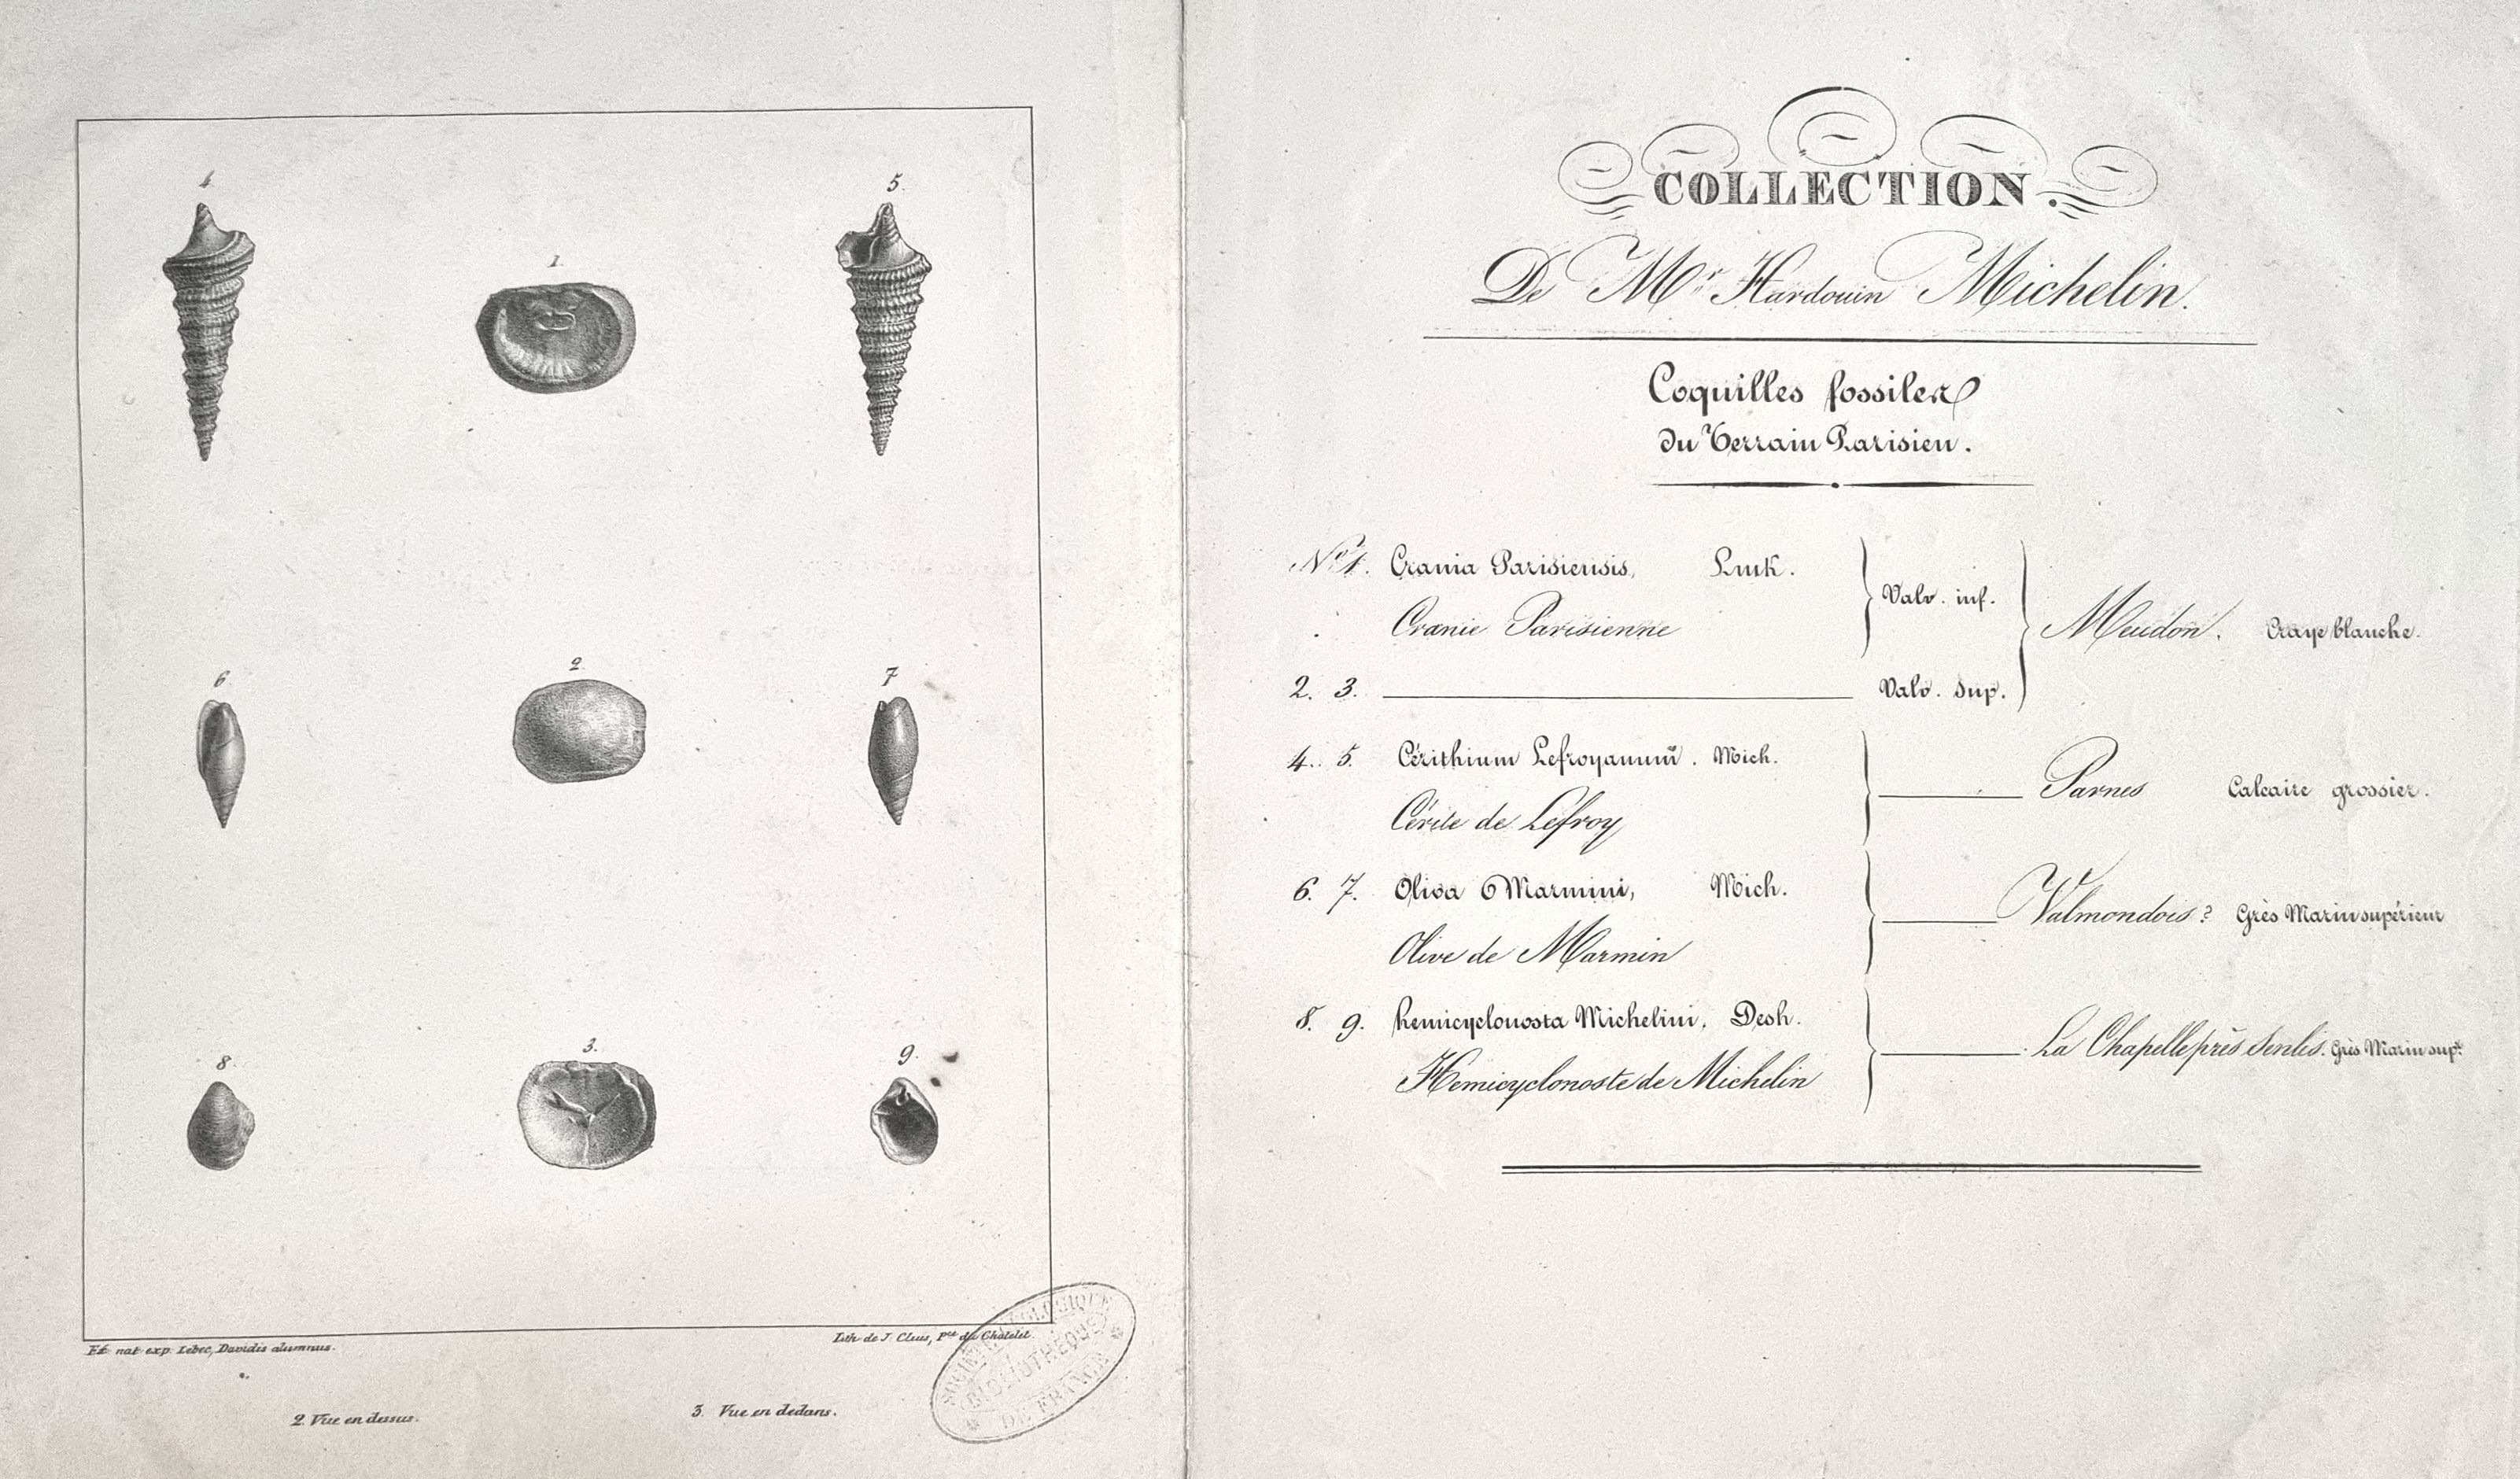 4
5.
1.
6
2.
7
8.
3.
9.
Et nat. exp. Lebec, Davidis alumnus.
Lith. de J. Cluis, Pce du Chatelet.
2. Vue en dessus.
3. Vue en dedans.
SOCIÉTÉ GÉOLOGIQUE
BIBLIOTHÈQUE
DE FRANCE
COLLECTION.
De Mr Hardouin Michelin.
Coquilles fossiles
du Terrain Parisien.
No 1. Crania Parisiensis, Lmk. Valv. inf.
Cranie Parisienne Meudon. Craye blanche.
2. 3. Valv. sup.
4. 5. Cérithium Lefroyanum. Mich.
Cérite de Lefroy Parnes Calcaire grossier.
6. 7. Oliva Marmini, Mich.
Olive de Marmin Valmondois? Grès Marin supérieur
8. 9. hemicyclonosta Michelini, Desh.
Hemicyclonoste de Michelin La Chapelle près Senlis. Grès Marin supr.